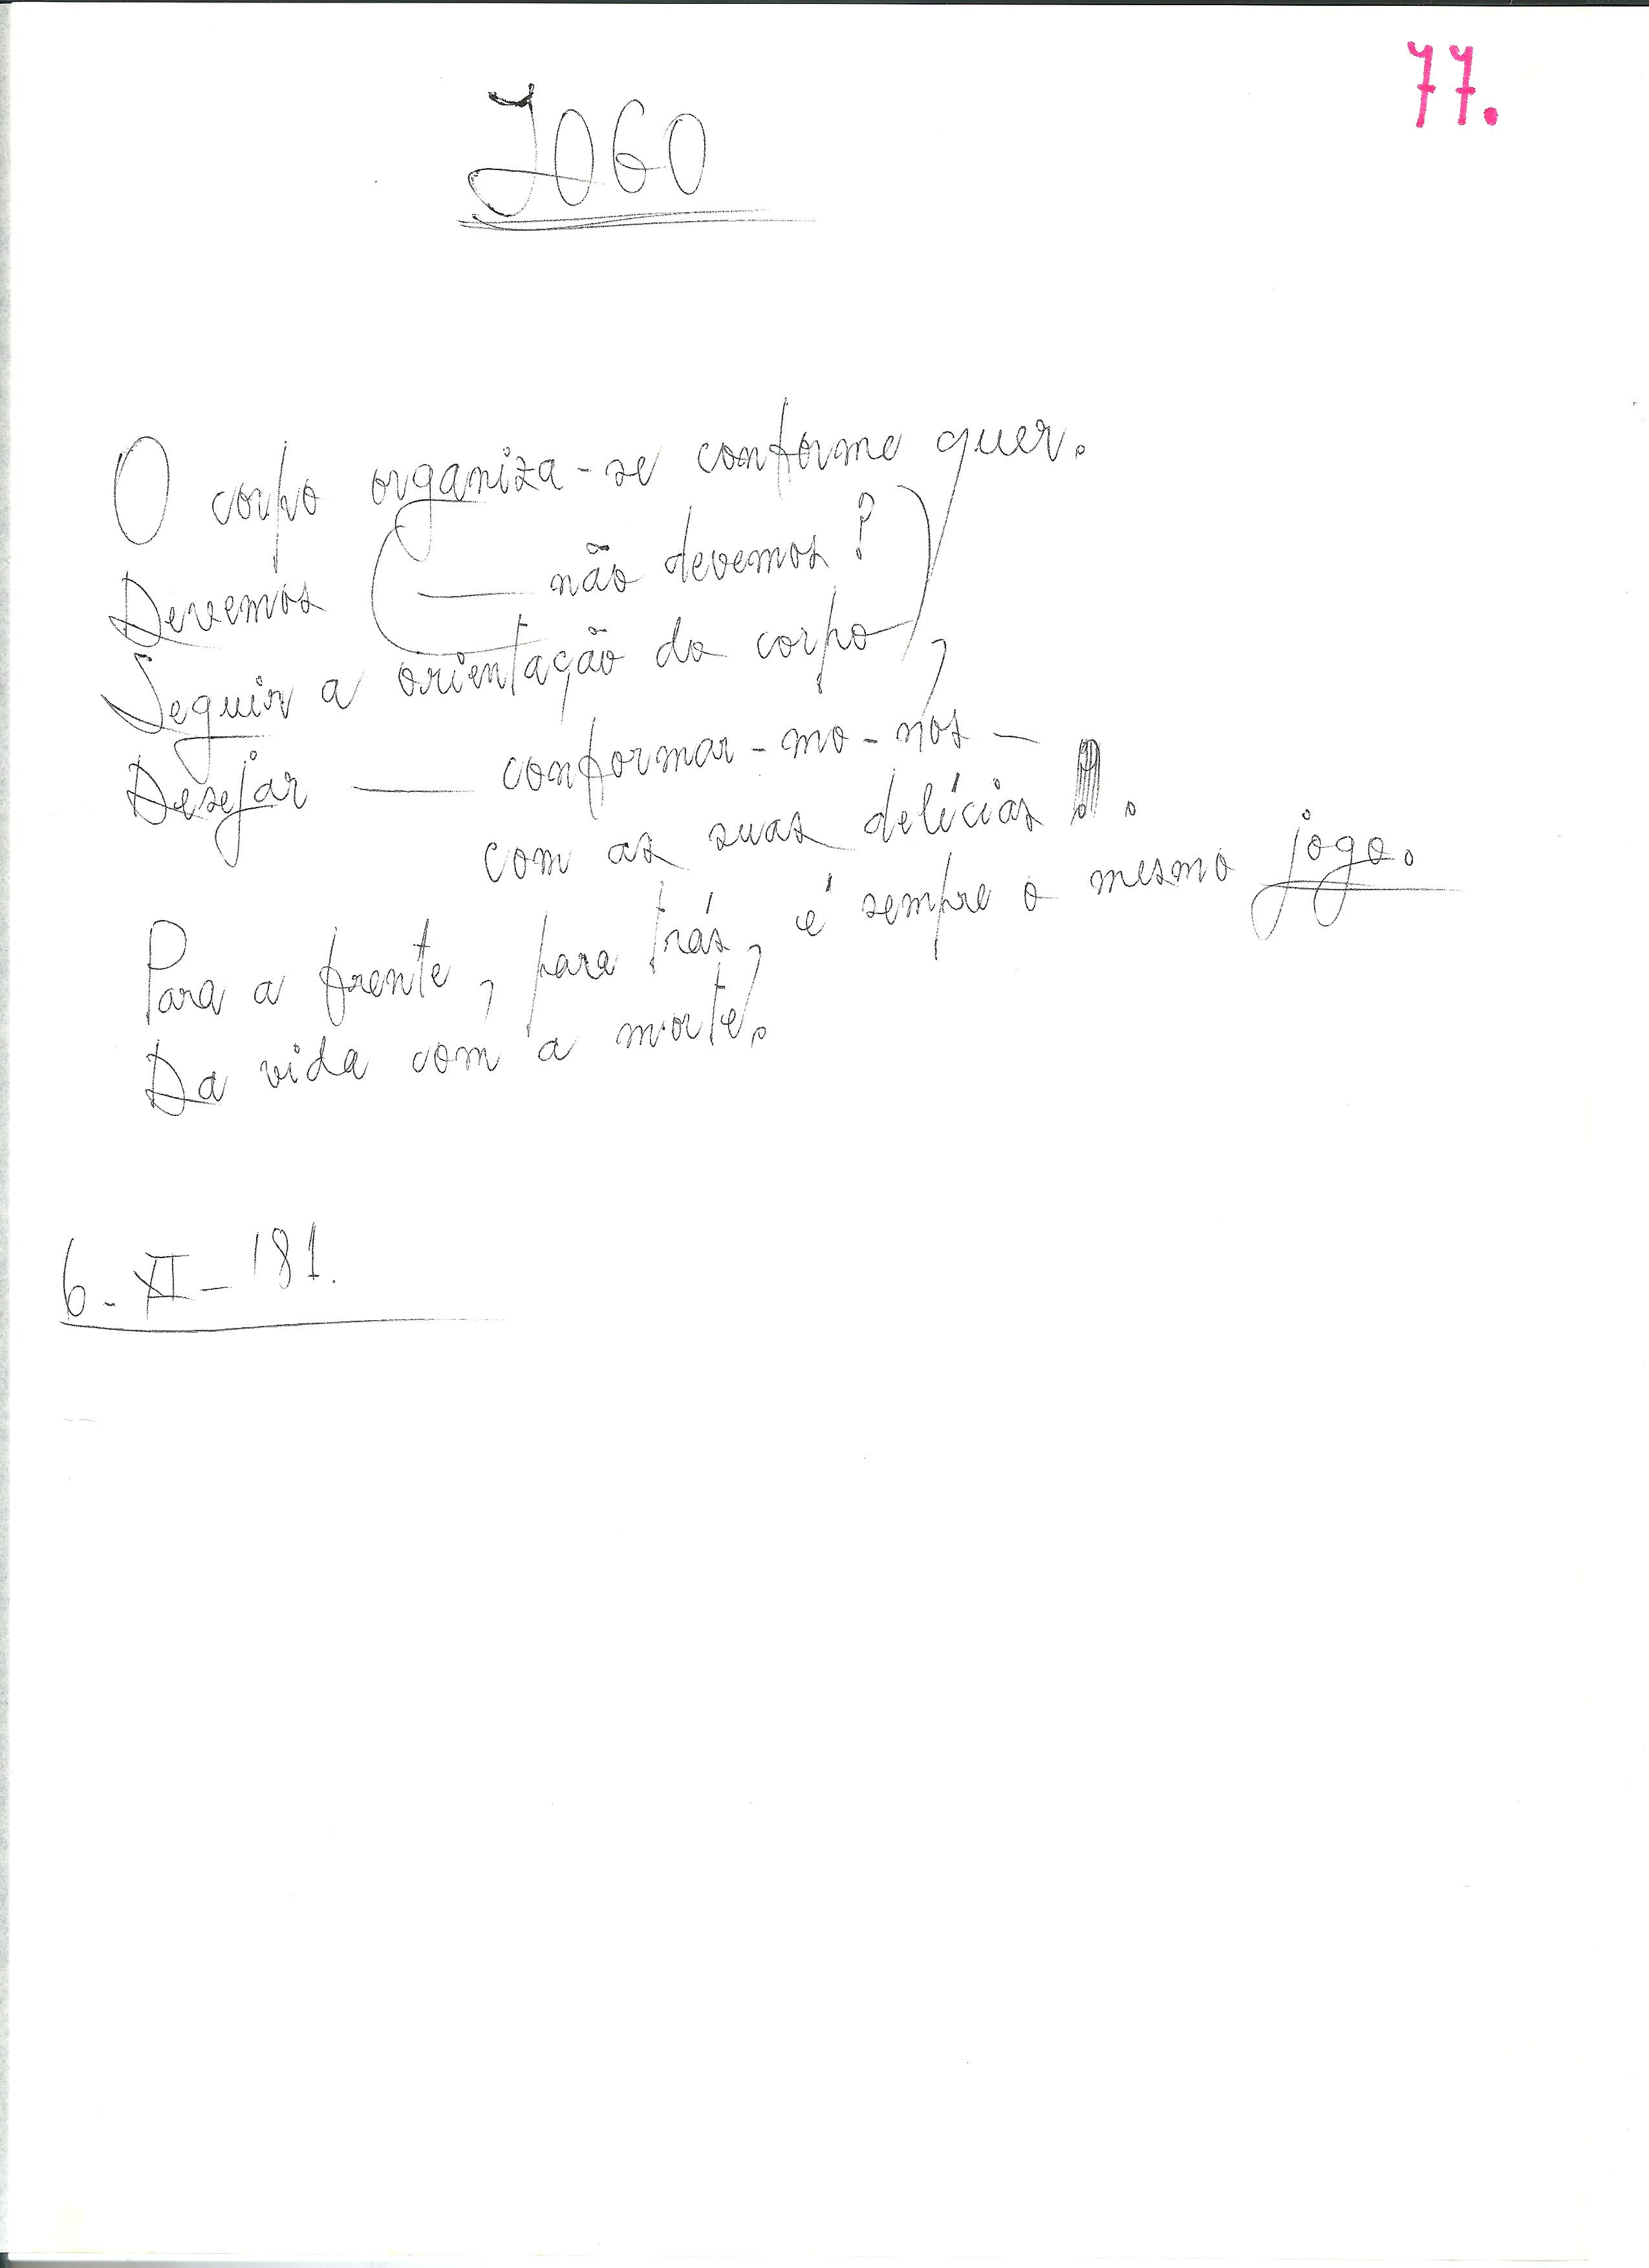 77.
JOGO
O corpo organiza-se conforme quer.
Devemos (— não devemos?)
Seguir a orientação do corpo,
Desejar — conformar-mo-nos —
com as suas delícias.
Para a frente, para trás, é sempre o mesmo jogo.
Da vida com a morte.
6-XI-'81.